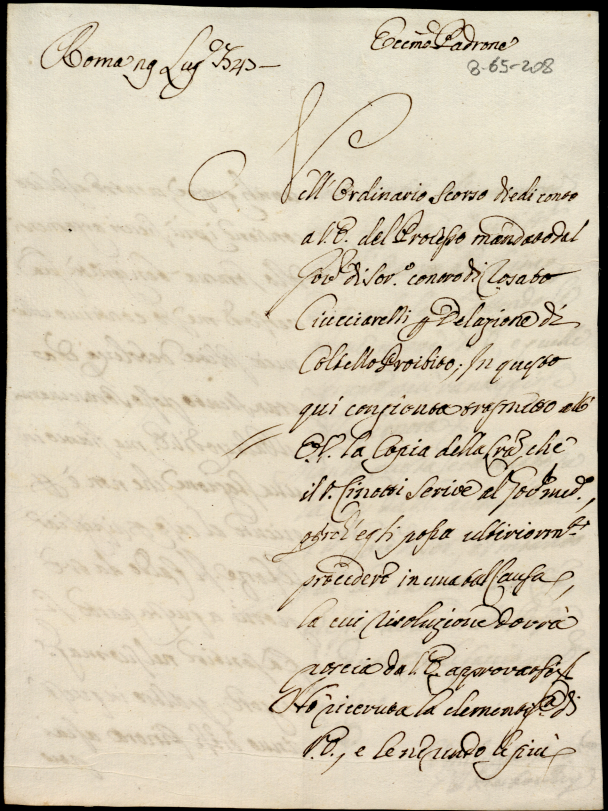 Eccmo Padrone
8-65-208
Roma 29 Lugo 1747
Nell' Ordinario scorso diedi conto
a V.E. del Processo mandato dal
Govr di Ser.o contro di Rosato
Ciucciarelli p Delazione di
Coltello Proibito; In questo
qui congionta trasmetto all'
E.V. la Copia della Lra, che
il P. Cinotti scrive al Govr med.o,
perch'egli possa ulteriormte
procedere in una tal Causa,
la cui risoluzione dovrà
poscia da V.E. approvarsi
Ho' ricevuta la clementma di
V.E., e le ne rendo le più